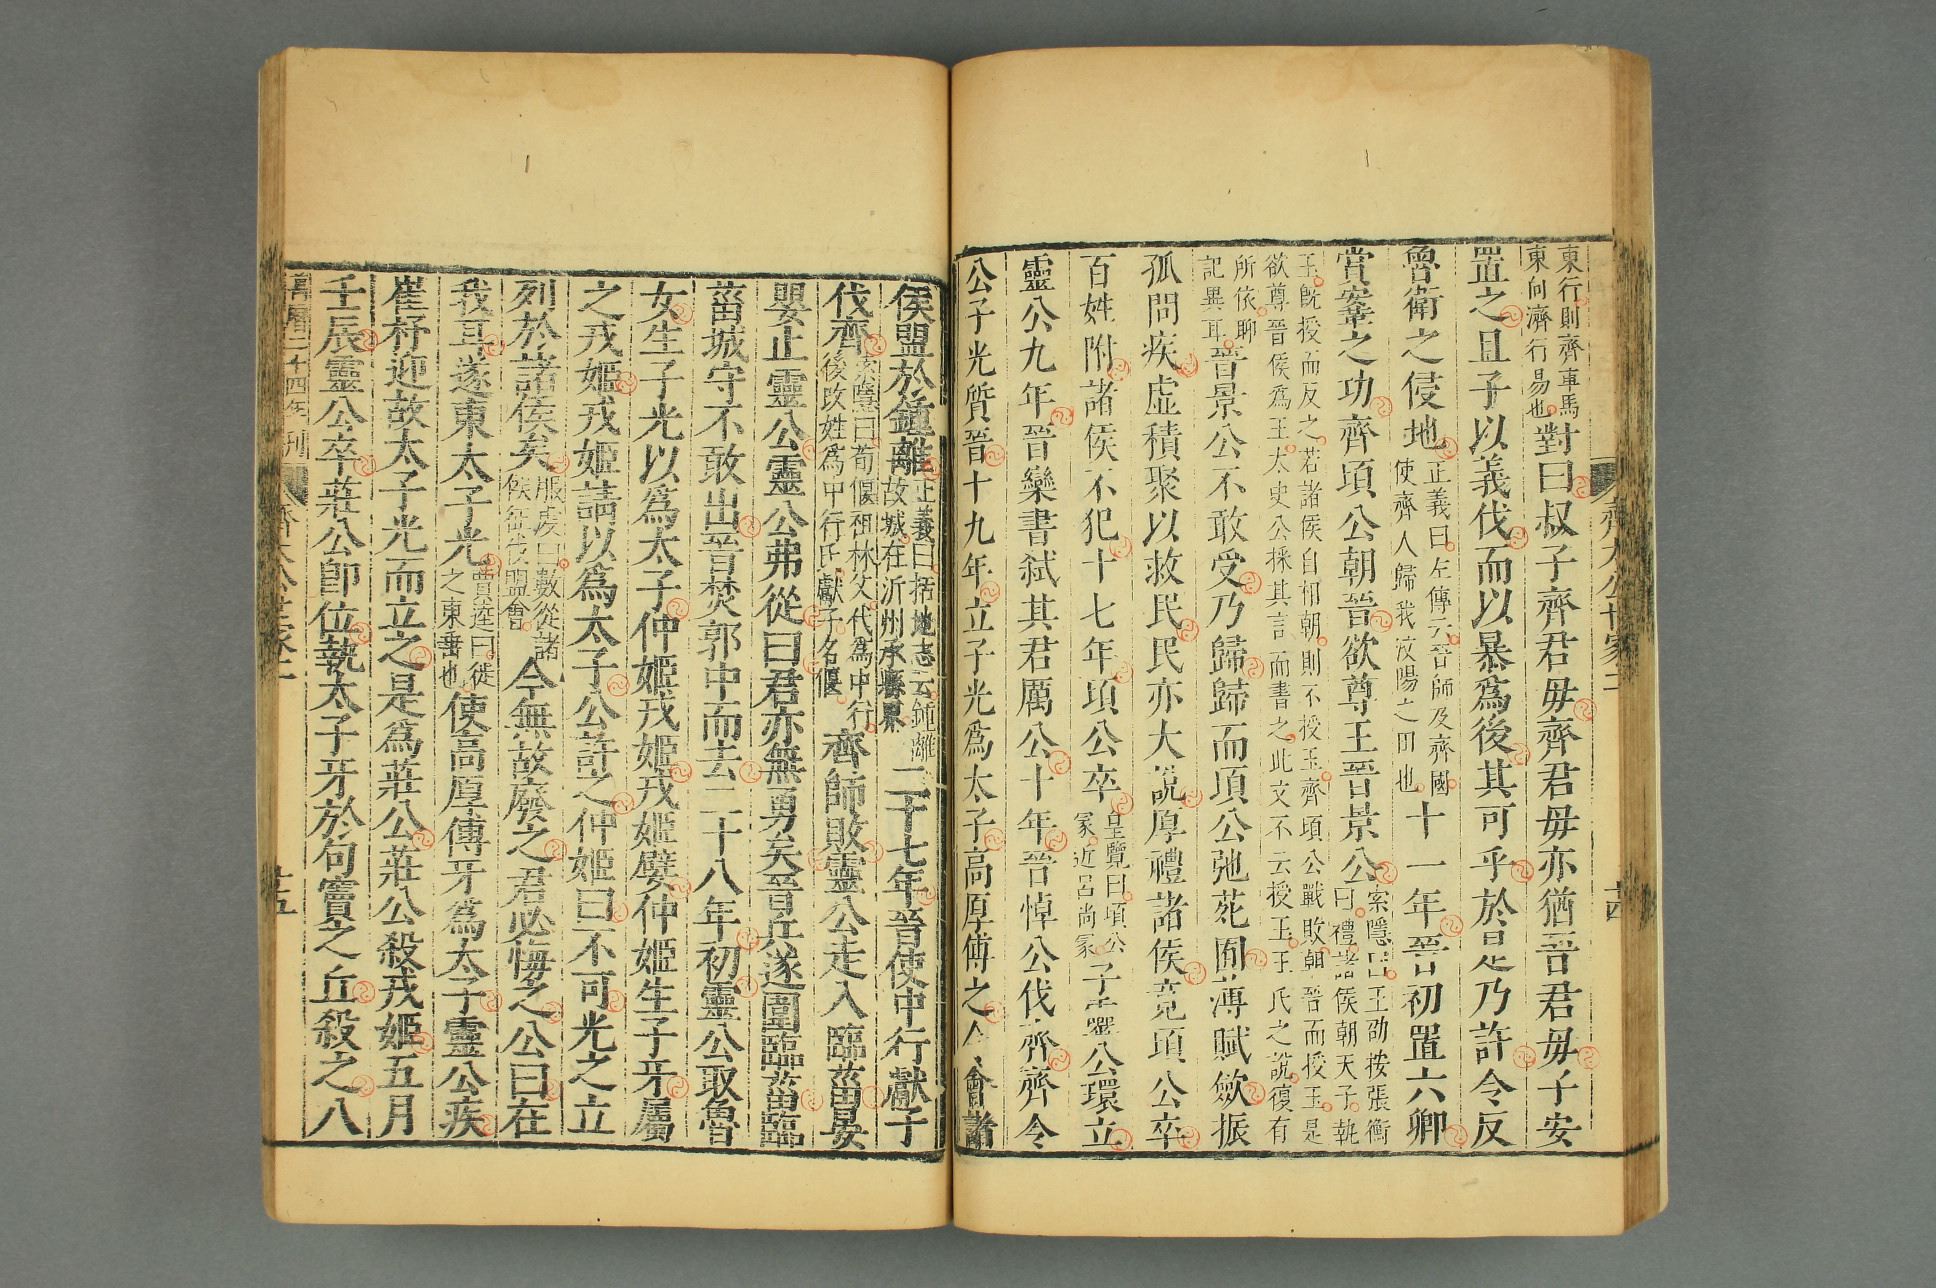 齊太公世家二
十四
東行則齊車馬
東向濟行易也
對曰叔子齊君毋齊君毋亦猶晉君毋子安
置之且子以義伐而以暴爲後其可乎於是乃許令反
魯衛之侵地
正義曰左傳云晉師及齊國
使齊人歸我汶陽之田也
十一年晉初置六卿
賞鞌之功齊頃公朝晉欲尊王晉景公
索隱曰王劭按張衡
曰禮諸侯朝天子執
玉旣授而反之若諸侯自相朝則不授玉齊頃公戰敗朝晉而授玉是
欲尊晉侯爲王太史公採其言而書之此文不云授玉王氏之說復有
所依聊
記異耳
晉景公不敢受乃歸歸而頃公弛苑囿薄賦斂振
孤問疾虛積聚以救民民亦大說厚禮諸侯竟頃公卒
百姓附諸侯不犯十七年頃公卒
皇覽曰頃公
冢近呂尚冢
子靈公環立
靈公九年晉欒書弑其君厲公十年晉悼公伐齊齊令
公子光質晉十九年立子光爲太子高厚傅之令會諸
侯盟於鍾離
正義曰括地志云鍾離
故城在沂州承縣界
二十七年晉使中行獻子
伐齊
索隱曰荀偃祖林父代爲中行
後改姓爲中行氏獻子名偃
齊師敗靈公走入臨菑晏
嬰止靈公靈公弗從曰君亦無勇矣晉兵遂圍臨菑臨
菑城守不敢出晉焚郭中而去二十八年初靈公取魯
女生子光以爲太子仲姬戎姬戎姬嬖仲姬生子牙屬
之戎姬戎姬請以爲太子公許之仲姬曰不可光之立
列於諸侯矣
服虔曰數從諸
侯征伐盟會
今無故廢之君必悔之公曰在
我耳遂東太子光
賈逵曰徙
之東垂也
使高厚傅牙爲太子靈公疾
崔杼迎故太子光而立之是爲莊公莊公殺戎姬五月
壬辰靈公卒莊公卽位執太子牙於句竇之丘殺之八
萬曆二十四年刊
齊太公世家二
十五